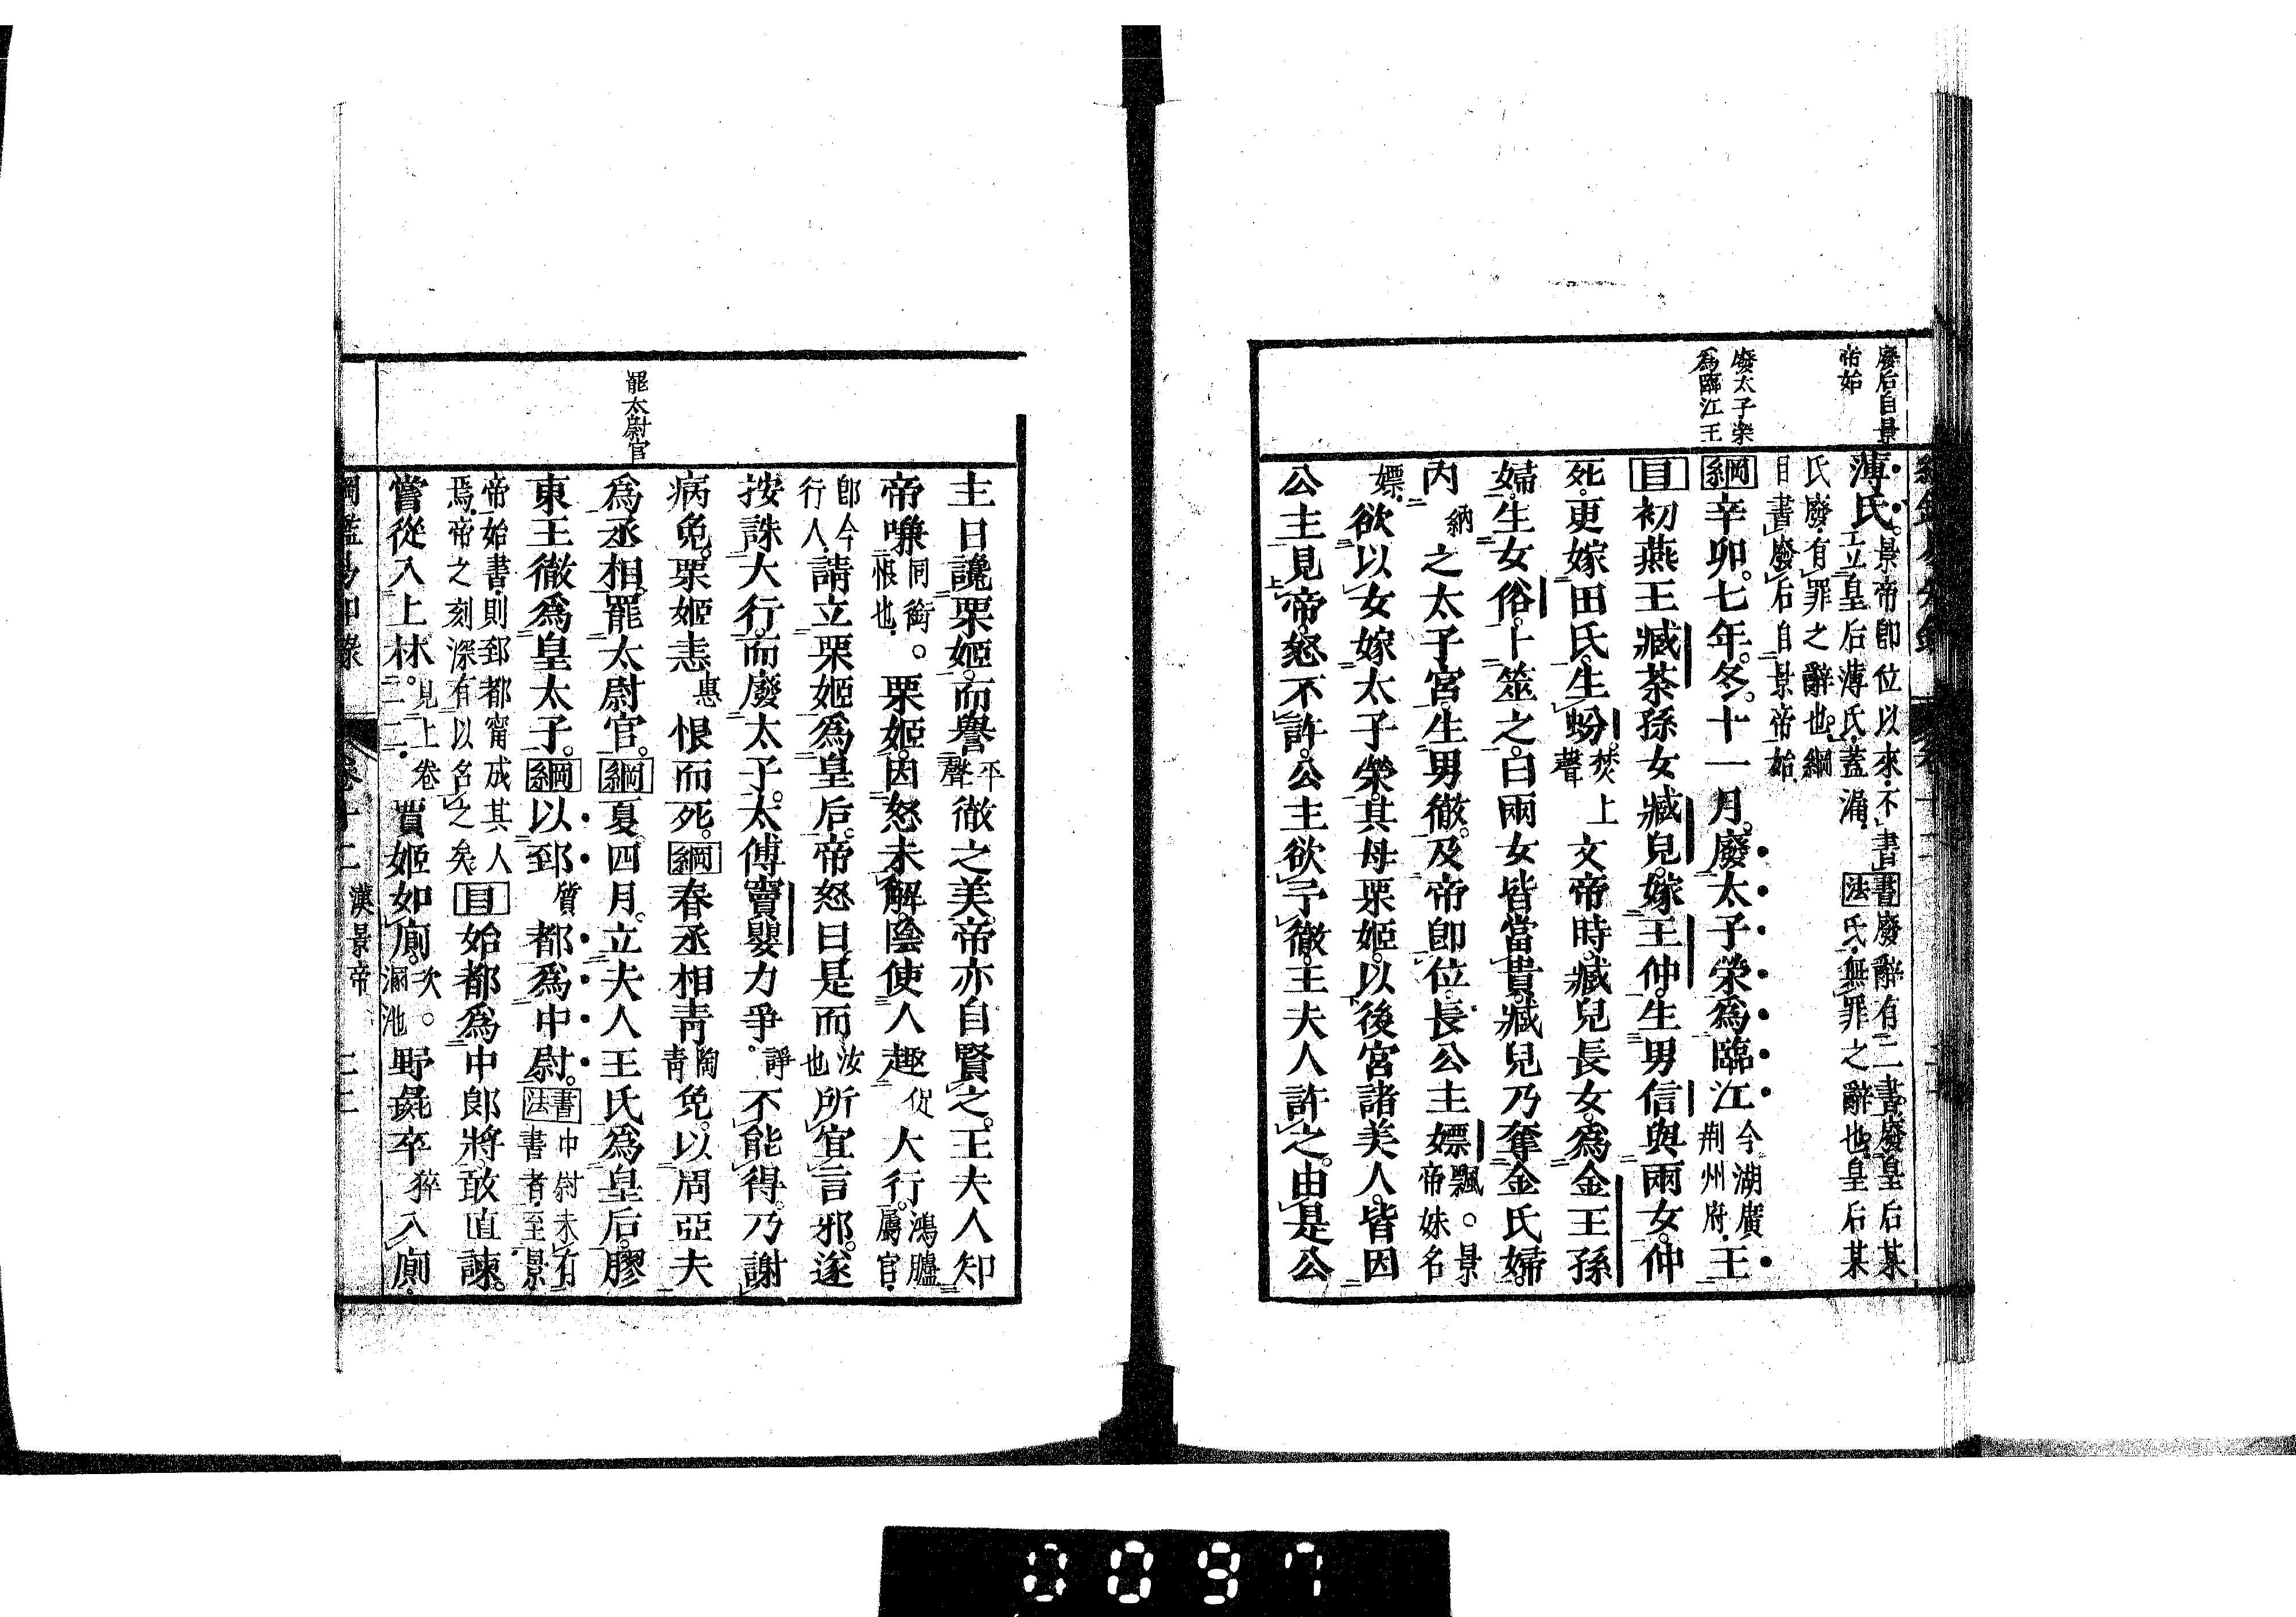 廢后自景
帝始
廢太子榮
爲臨江王
薄氏。景帝卽位以來不書立皇后薄氏蓋漏 書法 廢辭有二書廢皇后某氏無罪之辭也皇后某
氏廢有罪之辭也綱目書廢后自景帝始
綱辛卯。七年。冬。十一月。廢太子榮爲臨江今湖廣荆州府王
目初燕王臧荼孫女臧兒。嫁王仲。生男信與兩女。仲
死。更嫁田氏。生蚡。焚上聲文帝時。臧兒長女。爲金王孫
婦。生女俗。卜筮之。曰兩女皆當貴。臧兒乃奪金氏婦。
內納之太子宮。生男徹。及帝卽位。長公主嫖飄。景帝妹名
嫖欲以女嫁太子榮。其母栗姬。以後宮諸美人。皆因
公主見帝。怒不許。公主欲予徹。王夫人許之。由是公
罷太尉官
主日讒栗姬。而譽平聲徹之美。帝亦自賢之。王夫人知
帝嗛同銜。恨也。栗姬。因怒未解。陰使人趣促大行。鴻臚屬官。
卽今行人請立栗姬爲皇后。帝怒曰。是而汝也所宜言邪。遂
按誅大行。而廢太子。太傅竇嬰力爭。諍不能得。乃謝
病免。栗姬恚惠恨而死。綱春丞相靑陶靑免。以周亞夫
爲丞相。罷太尉官。綱夏四月。立夫人王氏爲皇后。膠
東王徹爲皇太子。綱以郅質都爲中尉。書法 中尉未有書者至景
帝始書則郅都甯成其人焉帝之刻深有以名之矣目始都爲中郎將敢直諫。
嘗從入上林。見上卷二二。賈姬如廁。次。溷池野彘卒猝入廁。
綱鑑易知錄 卷十二 漢景帝